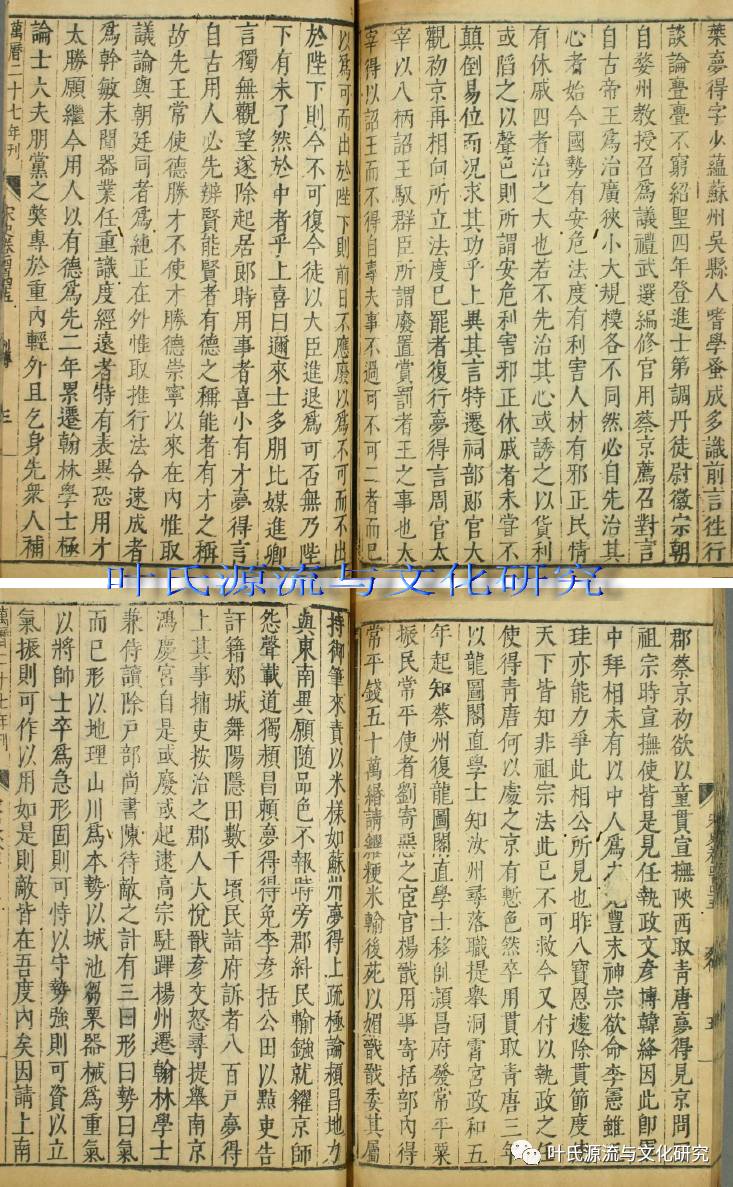 葉夢得字少蘊蘇州吳縣人嗜學蚤成多識前言往行
談論亹亹不窮紹聖四年登進士第調丹徒尉徽宗朝
自婺州教授召爲議禮武選編修官用蔡京薦召對言
自古帝王爲治廣狹小大規模各不同然必自先治其
心者始今國勢有安危法度有利害人材有邪正民情
有休戚四者治之大也若不先治其心或誘之以貨利
或䧟之以聲色則所謂安危利害邪正休戚者未甞不
顛倒易位而况求其功乎上異其言特遷祠部郎官大
觀初京再相向所立法度已罷者復行夢得言周官太
宰以八柄詔王馭群臣所謂廢置賞罰者王之事也太
宰得以詔王而不得自專夫事不過可不可二者而已
以爲可而出於陛下則前日不應廢以爲不可而不出
於陛下則今不可復今徒以大臣進退爲可否無乃陛
下有未了然於中者乎上喜曰邇來士多朋比媒進卿
言獨無觀望遂除起居郎時用事者喜小有才夢得言
自古用人必先辨賢能賢者有德之稱能者有才之稱
故先王常使德勝才不使才勝德崇寧以來在內惟取
議論與朝廷同者爲純正在外惟取推行法令速成者
爲幹敏未聞器業任重識度經遠者特有表異恐用才
太勝願繼今用人以有德爲先二年累遷翰林學士極
論士大夫朋黨之獘專於重內輕外且乞身先衆人補
萬曆二十七年刊
叶氏源流与文化研究
郡蔡京初欲以童貫宣撫陝西取青唐夢得見京問
祖宗時宣撫使皆是見任執政文彥博韓絳因此卽軍
中拜相未有以中人爲
豐末神宗欲命李憲雖
珪亦能力爭此相公所見也昨八寶恩遽除貫節度使
天下皆知非祖宗法此已不可救今又付以執政之任
使得青唐何以處之京有慙色然卒用貫取青唐三年
以龍圖閣直學士知汝州尋落職提舉洞霄宮政和五
年起知蔡州復龍圖閣直學士移帥潁昌府發常平粟
振民常平使者劉寄惡之宦官楊戩用事寄括部內得
常平錢五十萬緡請糴粳米輸後苑以媚戩戩委其屬
持御筆來責以米樣如蘇州夢得上疏極論潁昌地力
與東南異願隨品色不報時旁郡糾民輸鏹就糴京師
怨聲載道獨潁昌賴夢得得免李彥括公田以黠吏告
訐籍郟城舞陽隱田數千頃民詣府訴者八百戸夢得
上其事捕吏按治之郡人大悅戩彥交怒尋提舉南京
鴻慶宮自是或廢或起逮高宗駐蹕楊州遷翰林學士
兼侍讀除戸部尚書陳待敵之計有三曰形曰勢曰氣
而已形以地理山川爲本勢以城池芻粟器械爲重氣
以將帥士卒爲急形固則可恃以守勢強則可資以立
氣振則可作以用如是則敵皆在吾度內矣因請上南
萬曆二十七年刊
叶氏源流与文化研究